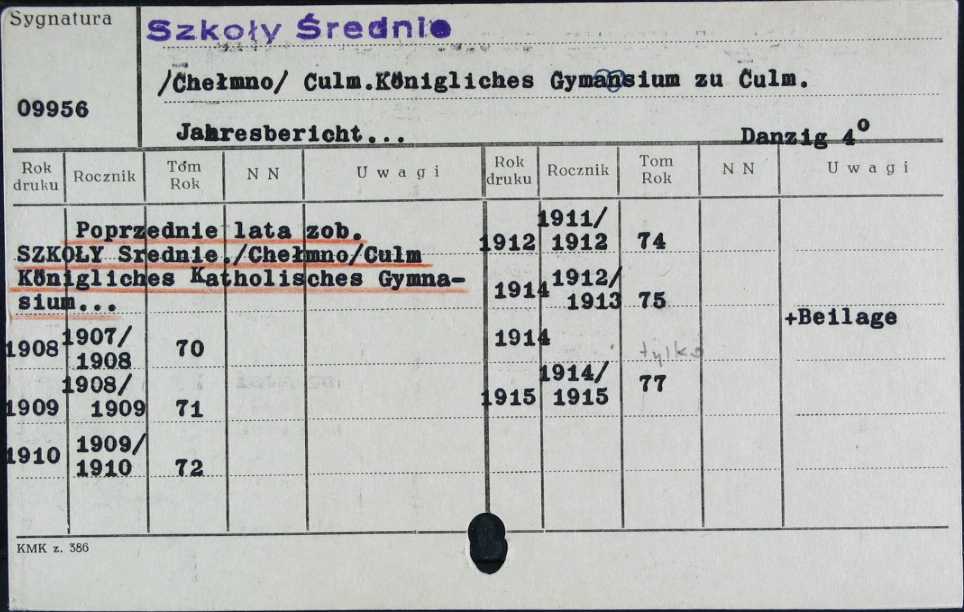 Sygnatura
Szkoły Średnie
09956
/Chełmno/ Culm.Königliches Gymansium zu Culm.
Jahresbericht... Danzig 4º
Rok druku Rocznik Tóm Rok N N U w a g i Rok druku Rocznik Tom Rok N N U w a g i
Poprzednie lata zob.
SZKOŁY Srednie./Chełmno/Culm
Königliches Katholisches Gymna-
sium...
1908 1907/1908 70
1909 1908/1909 71
1910 1909/1910 72
1912 1911/1912 74
1914 1912/1913 75
+Beilage
1914 tylko
1915 1914/1915 77
KMK z. 386